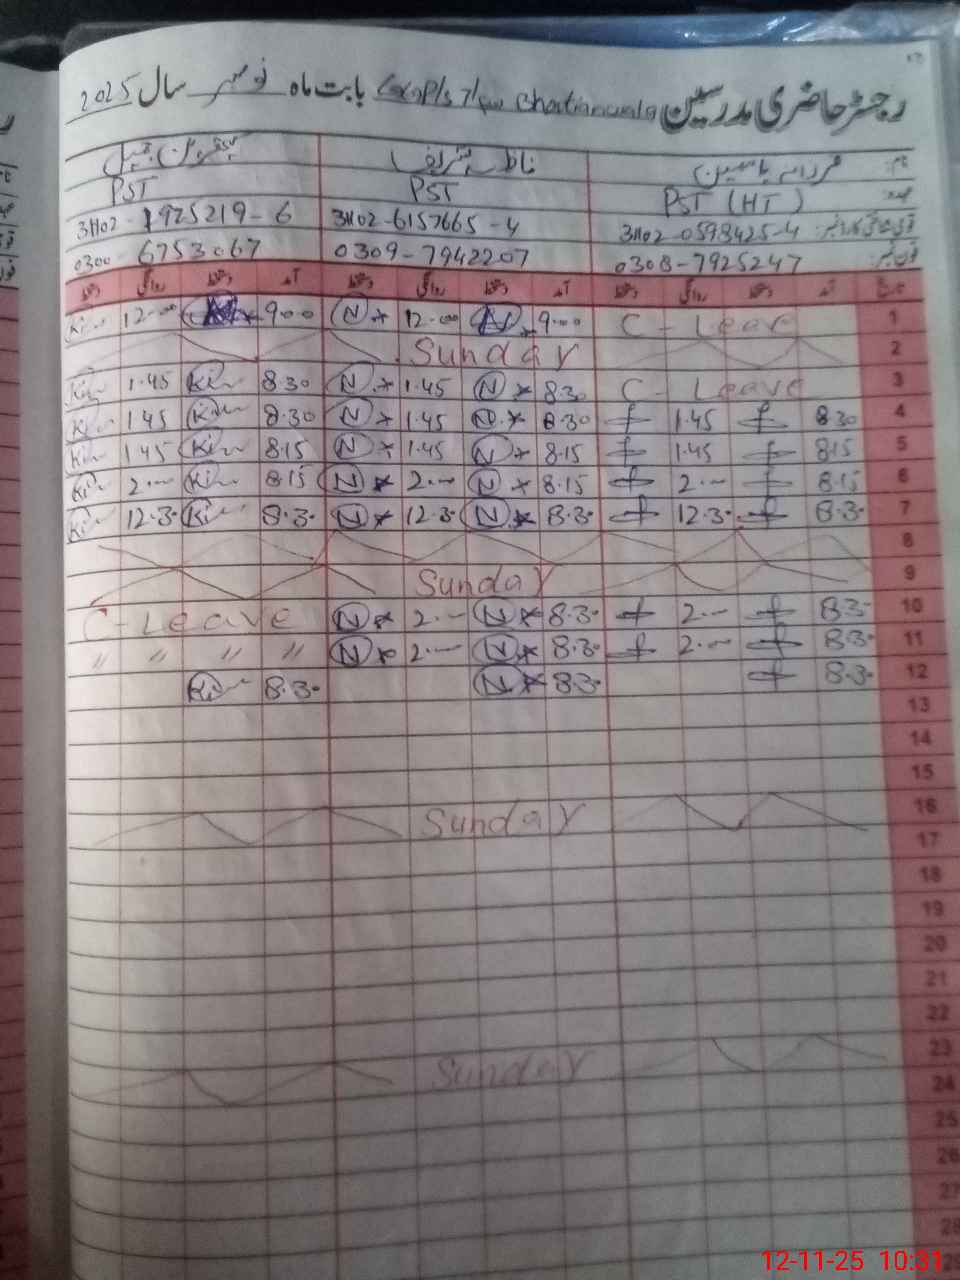 رجسٹر حاضری مدرسین Bhattianwala بابت ماہ نومبر سال 2025
نام:
PST PST PST (HT) عہدہ
31102-1925219-6 31102-6157665-4 31102-0593425-4 قومی شناختی کارڈ نمبر:
0300-6753067 0309-7942207 0308-7925247 فون نمبر:
دستخط روانگی دستخط آمد دستخط روانگی دستخط آمد دستخط روانگی دستخط آمد تاریخ
12-00 9-00 N 12-00 N 9-00 C-Leave 1
Sunday 2
1.45 8.30 N 1.45 N 8.30 C-Leave 3
1.45 8.30 N 1.45 N 8.30 1.45 8.30 4
1.45 8.15 N 1.45 N 8.15 1.45 8.15 5
2.— 8.15 N 2.— N 8.15 2.— 8.15 6
12.3- 8.3- N 12.3- N 8.3- 12.3- 8.3- 7
8
Sunday 9
C-Leave N 2.— N 8.3- 2.— 8.3- 10
" " " " N 2.— N 8.3- 2.— 8.3- 11
8.3- N 8.3- 8.3- 12
13
14
15
Sunday 16
17
18
19
20
21
22
Sunday 23
24
25
26
27
28
12-11-25 10:31